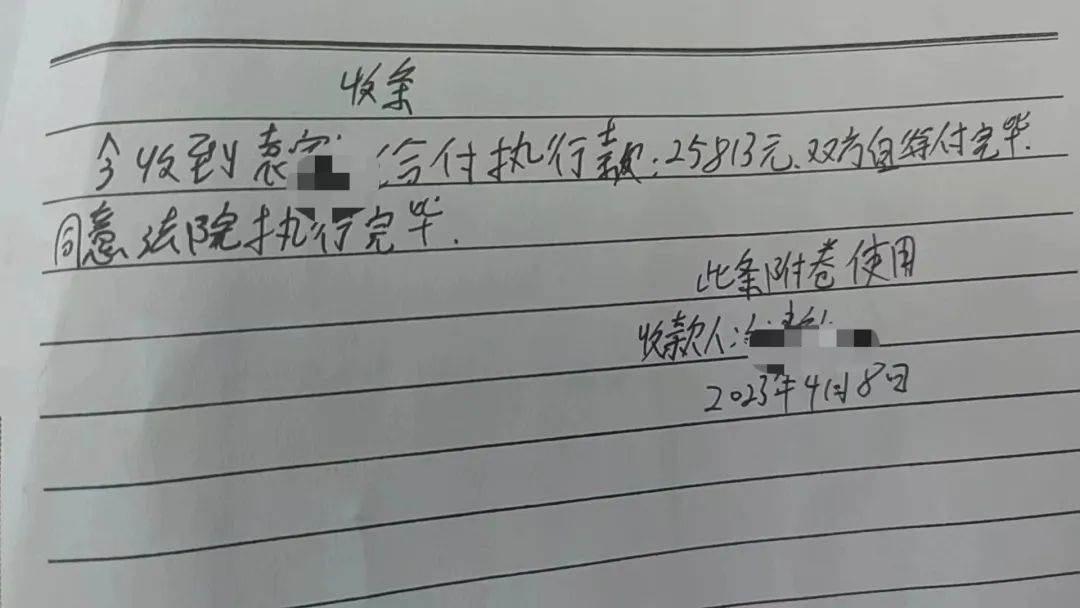 收条
今收到袁 给付执行款:25813元、双方自结付完毕.
同意法院执行完毕.
此条附卷使用
收款人:
2023年4月8日